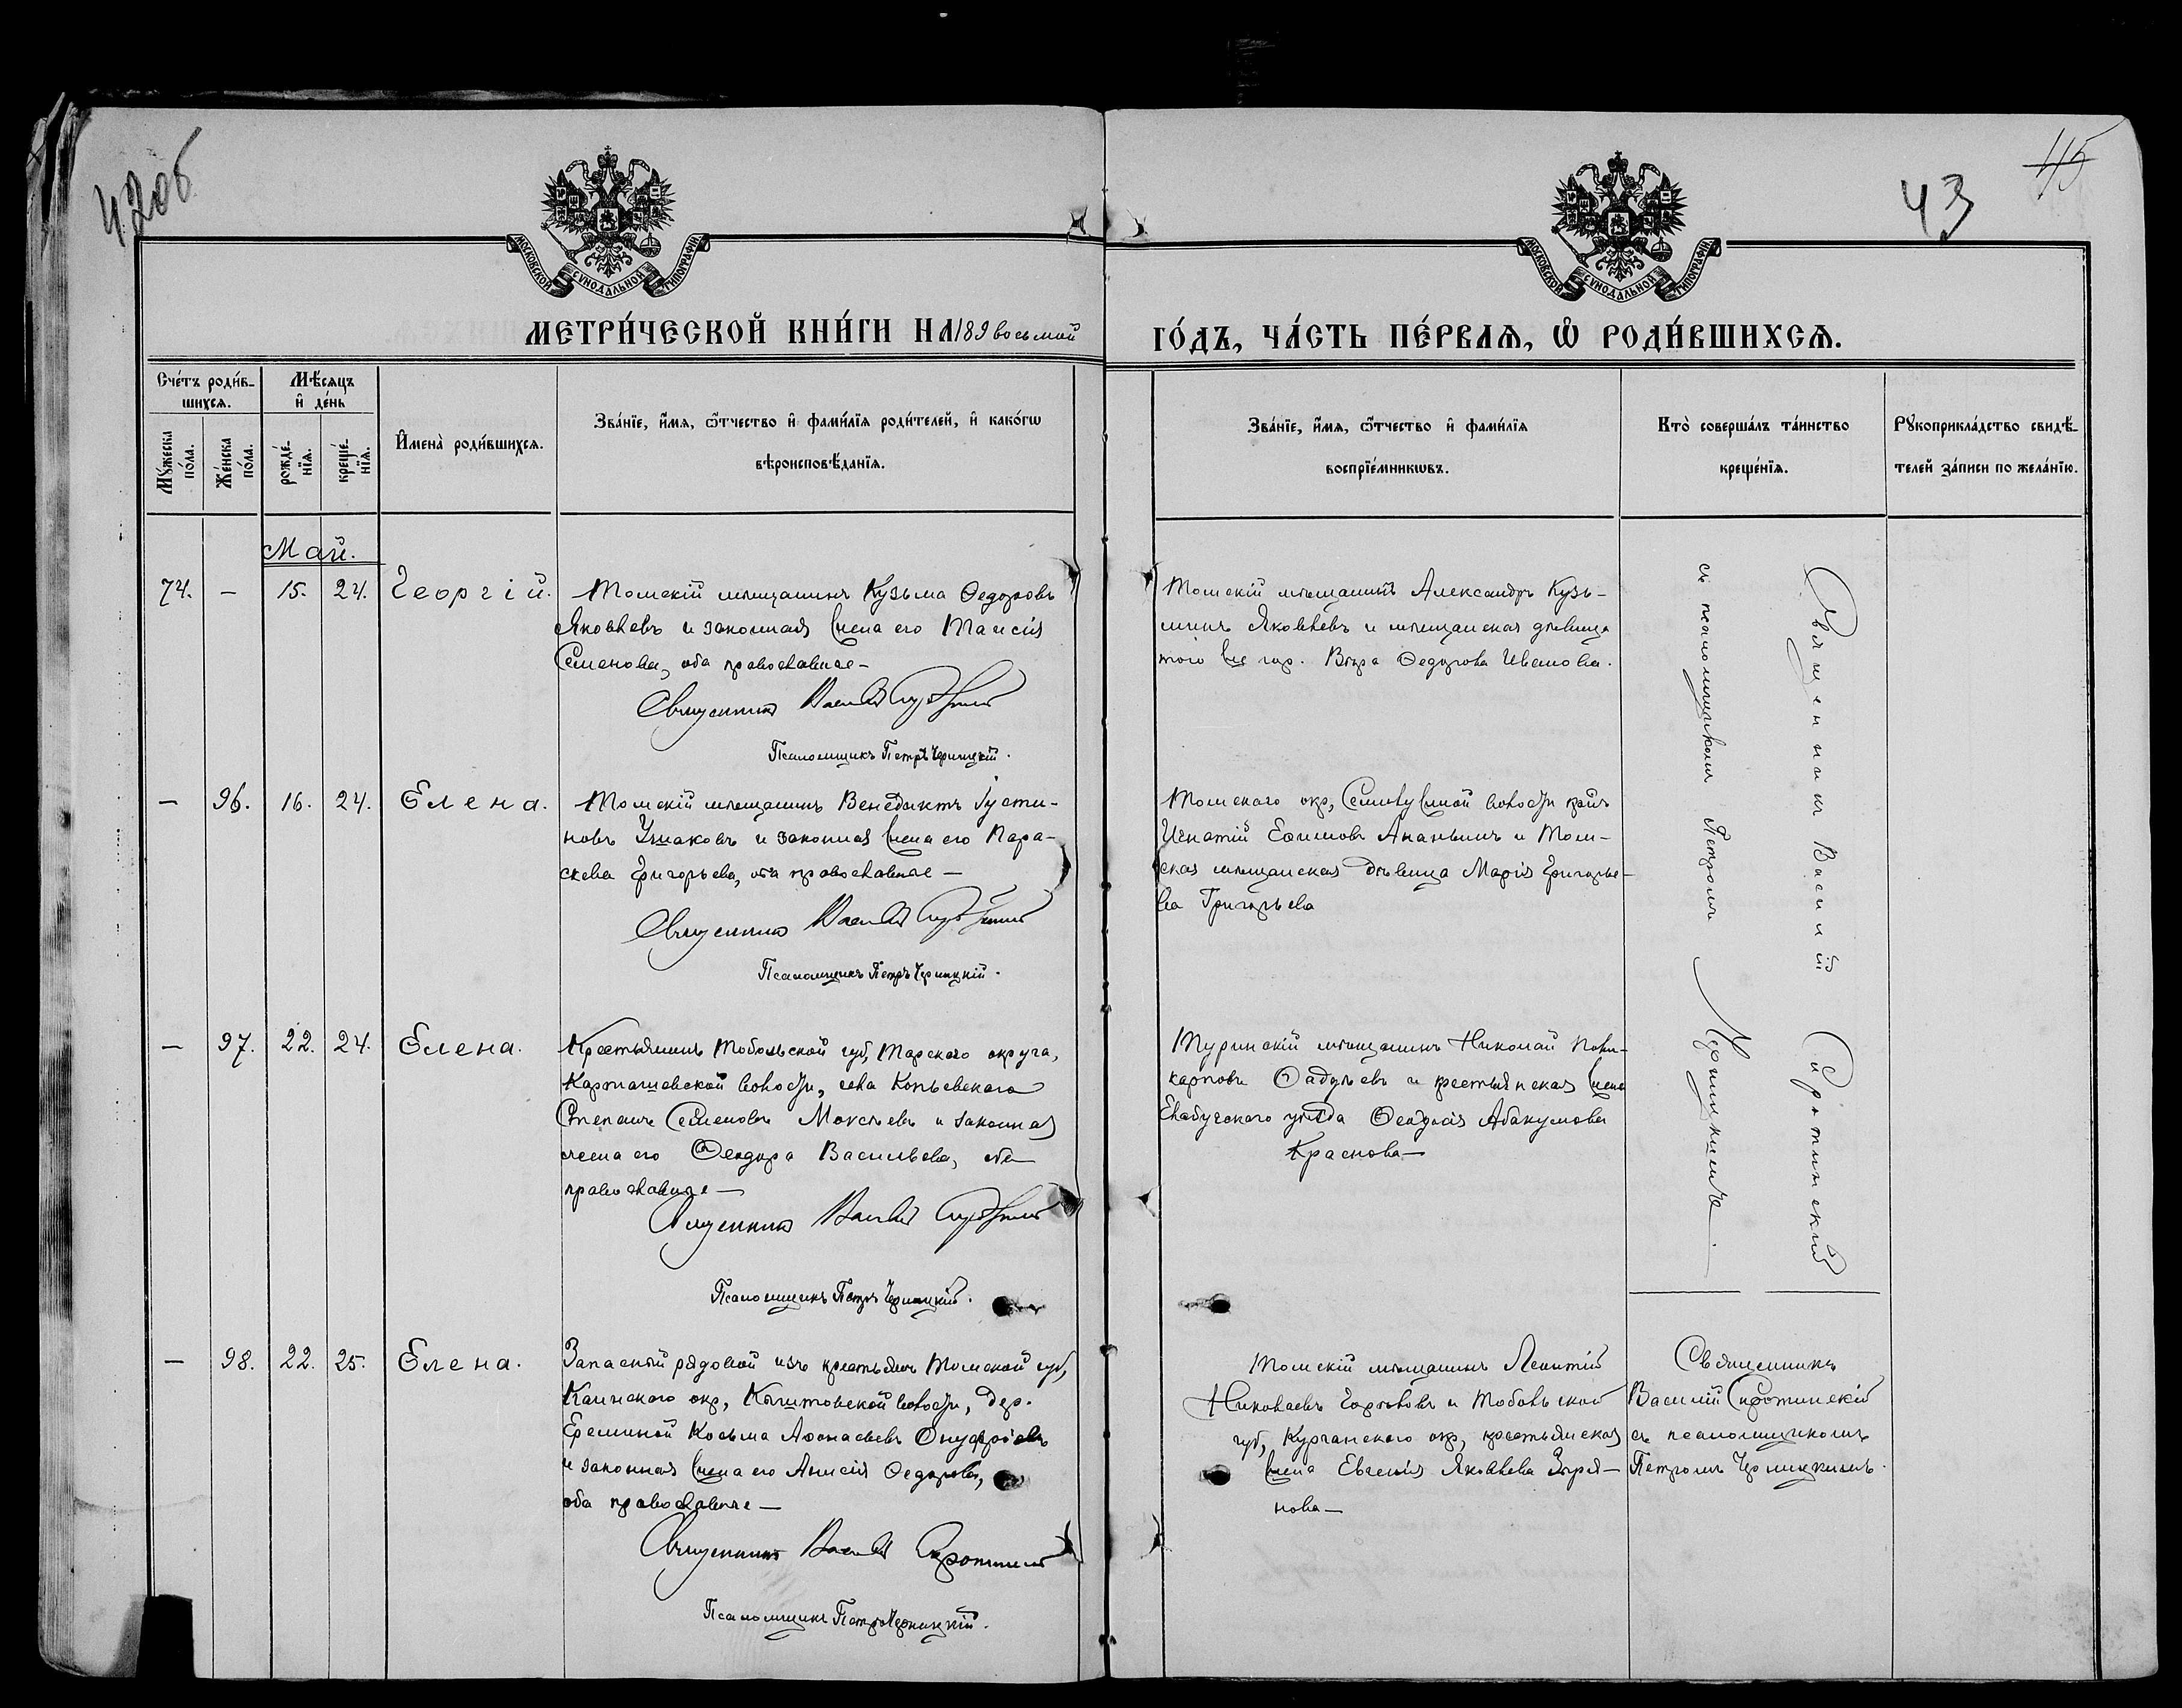 42об
43
45
МОСКОВСКОЙ СѴНОДАЛЬНОЙ ТИПОГРАФІИ
МОСКОВСКОЙ СѴНОДАЛЬНОЙ ТИПОГРАФІИ
МЕТРИ́ЧЕСКОЙ КНИ́ГИ НА 189 восьмой ГО́ДЪ, ЧА́СТЬ ПЕ́РВАЯ, Ѡ РОДИ́ВШИХСЯ.
Сче́тъ роди́в-
шихся.
Мѣ́сяцъ
и де́нь
Мꙋ́жеска
по́ла.
Же́нска
по́ла.
рожде́-
нїя.
креще́-
нїя.
Имена̀ роди́вшихся.
Зва́нїе, и́мя, ѻ҆́тчество и фами́лїя роди́телей, и како́гѡ
вѣроисповѣ́данїя.
Зва́нїе, и́мя, ѻ҆́тчество и фами́лїя
воспрїе́мникѡвъ.
Кто̀ соверша́лъ та́инство
креще́нїя.
Рꙋкоприкла́дство свидѣ́-
телей за́писи по жела́нїю.
Май.
74. — 15. 24. Георгій.
Томскій мѣщанинъ Кузьма Федоровъ
Яковлевъ и законная жена его Таисія
Семенова, оба православные—
Священникъ Василій Сиротинскій
Псаломщикъ Петръ Черницкій.
Томскій мѣщанинъ Александръ Кузь-
минъ Яковлевъ и мѣщанская дѣвица
того же гор. Вѣра Федорова Иванова.
— 96. 16. 24. Елена.
Томскій мѣщанинъ Венедиктъ Іусти-
новъ Ушаковъ и законная жена его Пара-
скева Григорьева, оба православные—
Священникъ Василій Сиротинскій
Псаломщикъ Петръ Черницкій.
Томскаго окр, Семилужной волости кр.
Игнатій Ефимовъ Ананьинъ и Том-
ская мѣщанская дѣвица Марія Григорье-
ва Григорьева
— 97. 22. 24. Елена.
Крестьянинъ Тобольской губ, Тарскаго округа,
Карташевской волости, села Копьевскаго
Степанъ Семеновъ Моксѣевъ и законная
жена его Феодора Васильева, оба
православные—
Священникъ Василій Сиротинскій
Псаломщикъ Петръ Черницкій.
Туринскій мѣщанинъ Николай Поли-
карповъ Фадѣевъ и крестьянская жена
Елабужского уѣзда Феодосія Абакумова
Краснова—
Священникъ Василій Сиротинскій
съ псаломщикомъ Петромъ Черницкимъ—.
— 98. 22. 25. Елена.
Запасный рядовой изъ крестьянъ Томской губ,
Каинскаго окр, Кыштовской волости, дер.
Ереминой Козьма Афонасьевъ Онуфріевъ
и законная жена его Анисія Федорова,
оба православные—
Священникъ Василій Сиротинскій
Псаломщикъ Петръ Черницкій.
Томскій мѣщанинъ Леонтій
Николаевъ и Тобольской
губ, Курганского окр, крестьянская
жена Евгенія Яковлева Зыря-
нова—
Священникъ
Василій Сиротинскій
съ псаломщикомъ
Петромъ Черницкимъ.